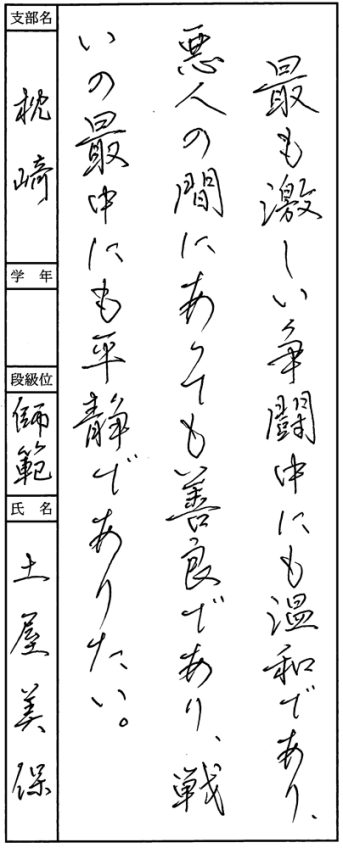 最も激しい争闘中にも温和であり、
悪人の間にありても善良であり、戦
いの最中にも平静でありたい。
支部名
枕崎
学年
段級位
師範
氏名
土屋美保